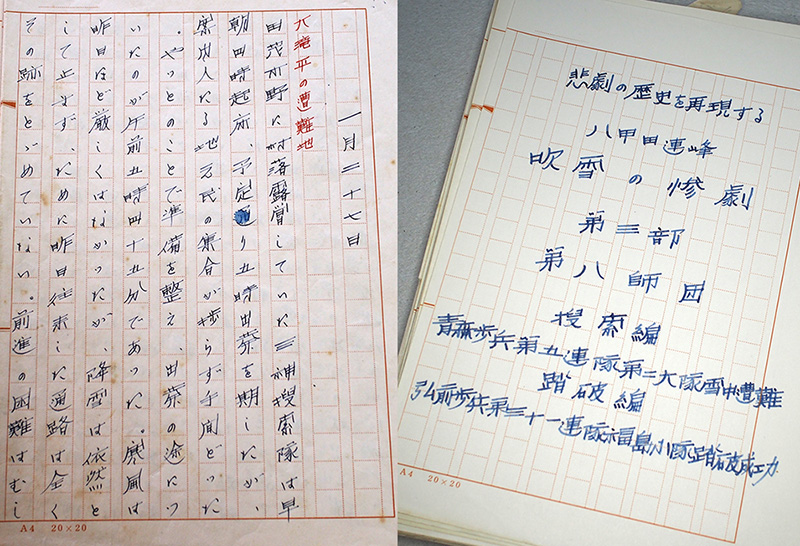 一月二十七日
大滝平の遭難地
田茂木野に村落露営していた三神捜索隊は早
朝四時起床、予定通り五時出発を期したが、
案内人になる地元民の集合が捗らず手間どった
。やっとのことで準備を整え、出発の途につ
いたのが午前五時四十五分であった。寒風は
昨日ほど厳しくはなかったが、降雪は依然と
して止まず、ために昨日往来した通路は全く
その跡をとゞめていない。前進の困難はむし
A4 20×20
悲劇の歴史を再現する
八甲田連峰
吹雪の惨劇
第三部
第八師団
捜索編
青森歩兵第五連隊第二大隊雪中遭難
踏破編
弘前歩兵第三十一連隊福島小隊踏破成功
A4 20×20